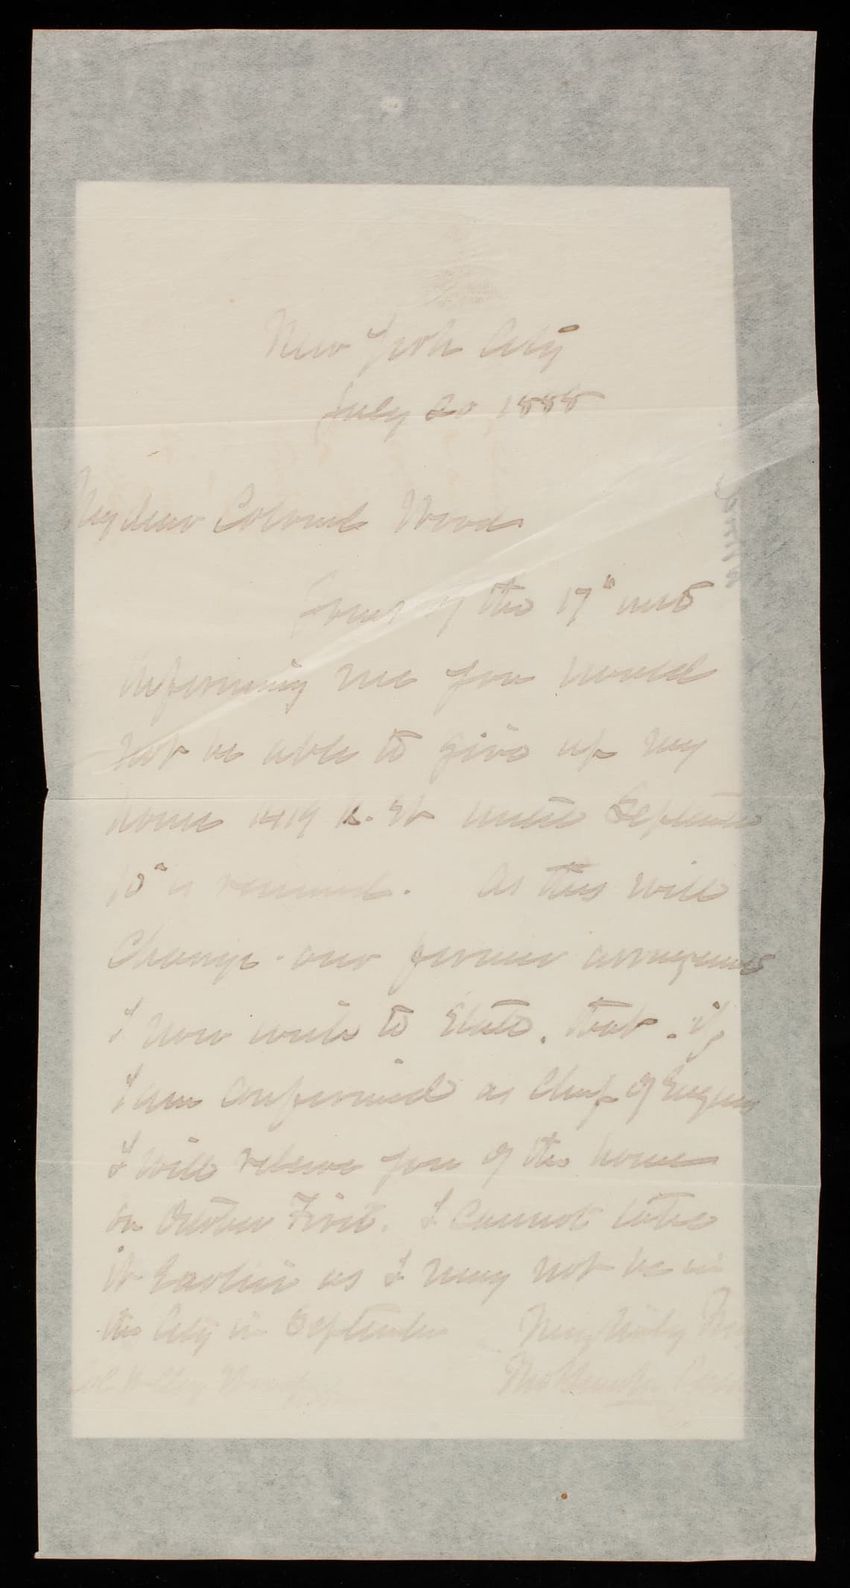 New York City
July 20 1888
My dear Colonel Wood
Yours of the 17" inst
informing me you would
not be able to give up my
house 1419 K. St until September
15" is received. As this will
change our former arrangements
I now write to state, that if
I am confirmed as Chief of Engineers
I will relieve you of the house
on October First. I cannot take
it Earlier as I may not be in
the City in September Very truly Yours
Col. Wood Thos Lincoln Casey